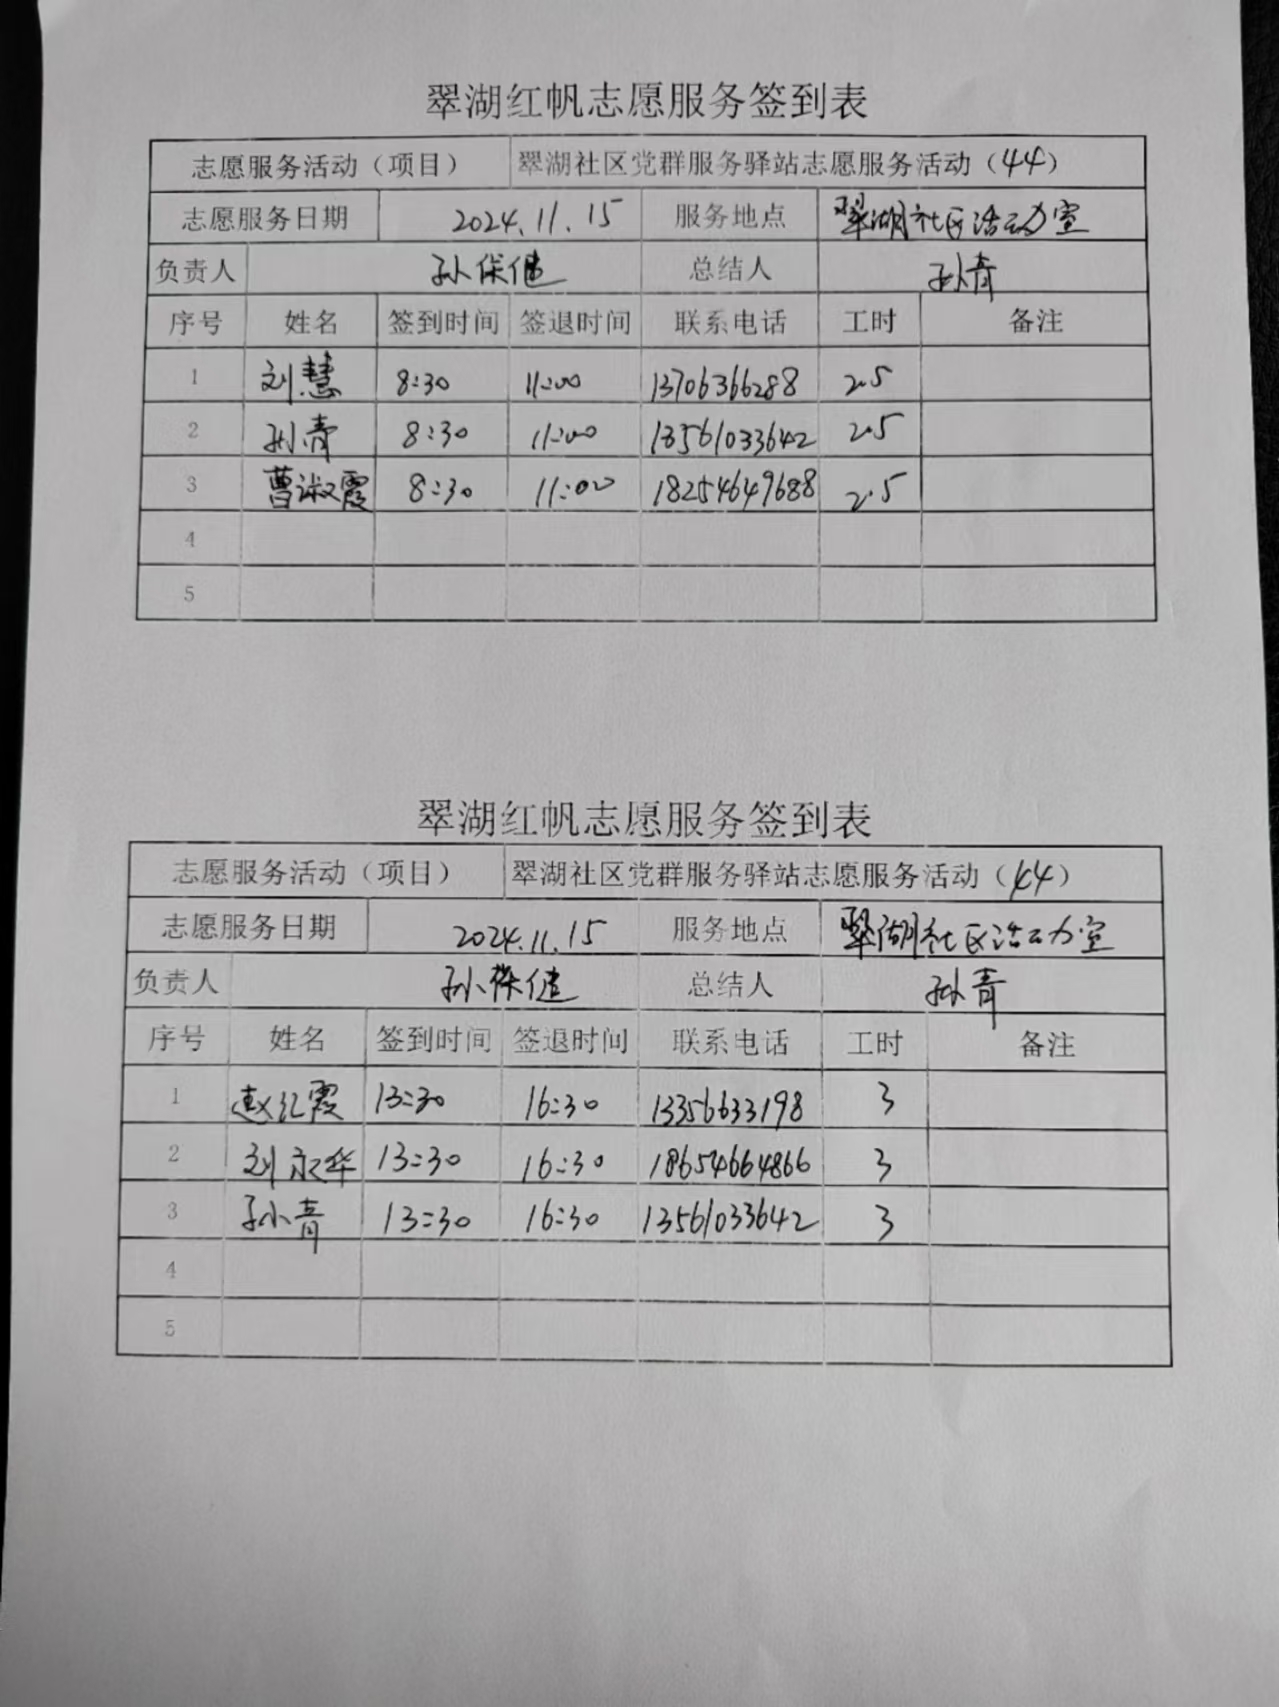 翠湖红帆志愿服务签到表
志愿服务活动（项目） 翠湖社区党群服务驿站志愿服务活动（44）
志愿服务日期 2024.11.15 服务地点 翠湖社区活动室
负责人 孙保健 总结人 孙青
序号 姓名 签到时间 签退时间 联系电话 工时 备注
1 刘慧 8:30 11:00 13706366288 2.5
2 孙青 8:30 11:00 13561033642 2.5
3 曹淑霞 8:30 11:00 18254649688 2.5
4
5
翠湖红帆志愿服务签到表
志愿服务活动（项目） 翠湖社区党群服务驿站志愿服务活动（44）
志愿服务日期 2024.11.15 服务地点 翠湖社区活动室
负责人 孙保健 总结人 孙青
序号 姓名 签到时间 签退时间 联系电话 工时 备注
1 赵红霞 13:30 16:30 13356633198 3
2 刘永华 13:30 16:30 18654664866 3
3 孙青 13:30 16:30 13561033642 3
4
5